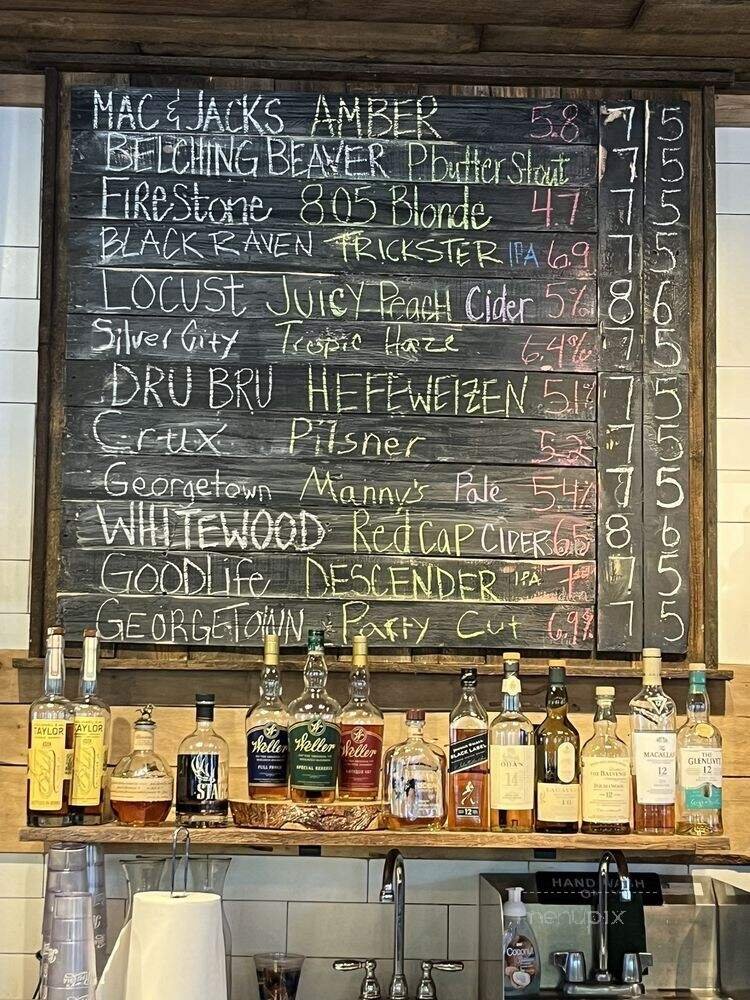 MAC & JACKS AMBER 5.8 7 5
BELCHING BEAVER P.butter Stout 7 5
FIRestone 805 Blonde 4.7 7 5
BLACK RAVEN TRICKSTER IPA 6.9 7 5
LOCUST JUICY Peach Cider 5% 8 6
Silver City Tropic Haze 6.4% 7 5
DRU BRU HEFEWEIZEN 5.1% 7 5
Crux Pilsner 5.2 7 5
Georgetown Manny's Pale 5.4% 7 5
WHITEWOOD Red Cap CIDER 6.5 8 6
GOODLife DESCENDER IPA 7 5
GEORGETOWN Party Cut 6.9% 7 5
TAYLOR TAYLOR
STA
Weller Weller Weller
FULL PROOF SPECIAL RESERVE ANTIQUE 107
BLACK LABEL
12
OBAN
14
LAGAVULIN
16
THE BALVENIE
DOUBLEWOOD
12
The MACALLAN
12
THE GLENLIVET
12
HAND WASH
menupix
Coconut